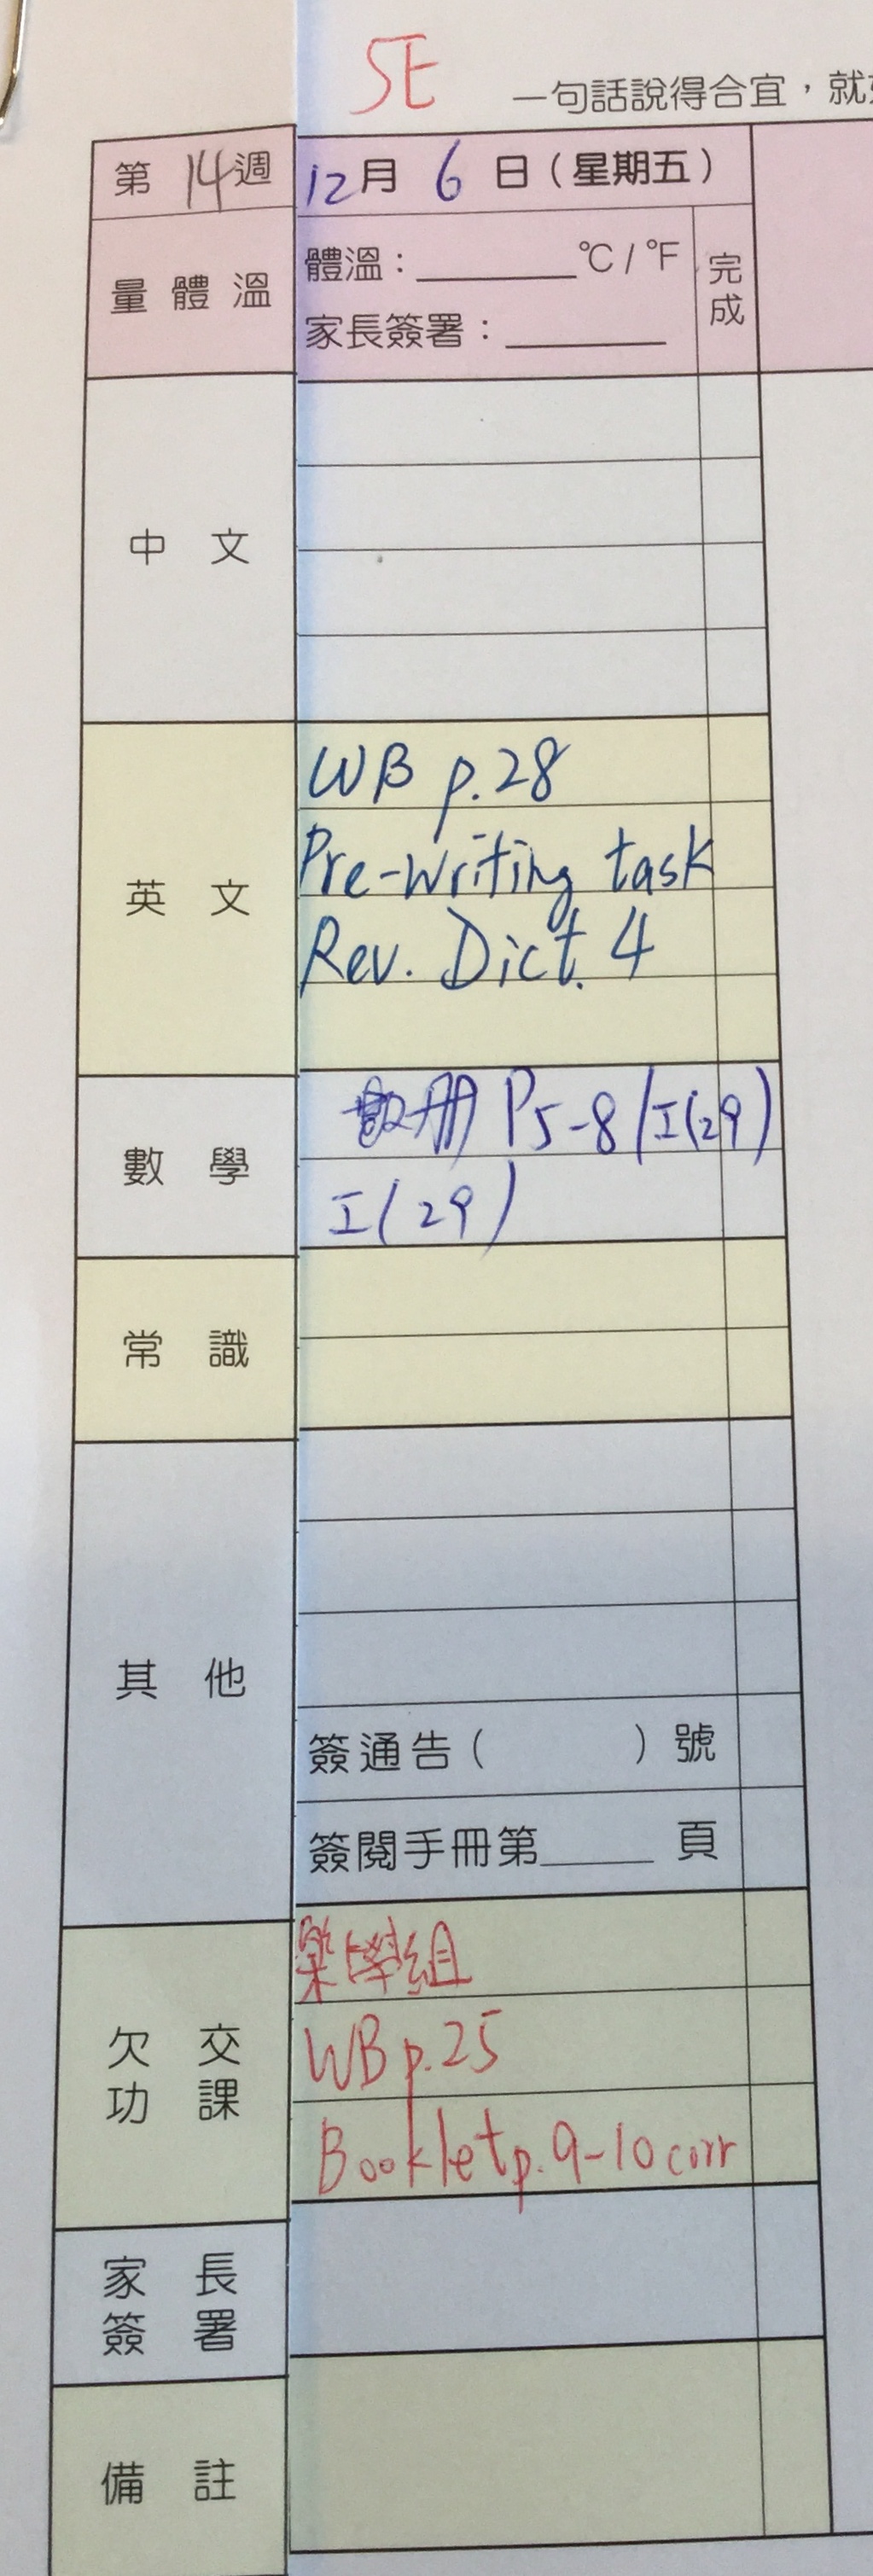 5E
一句話說得合宜，就
第 14 週
12 月 6 日（星期五）
量體溫
體溫：______°C / °F
家長簽署：______
完成
中文
英文
WB p.28
Pre-writing task
Rev. Dict. 4
數學
冊 P5-8/I(29)
I(29)
常識
其他
簽通告（　　）號
簽閱手冊第____頁
欠交功課
樂學組
WB p.25
Booklet p.9-10 corr
家長簽署
備註